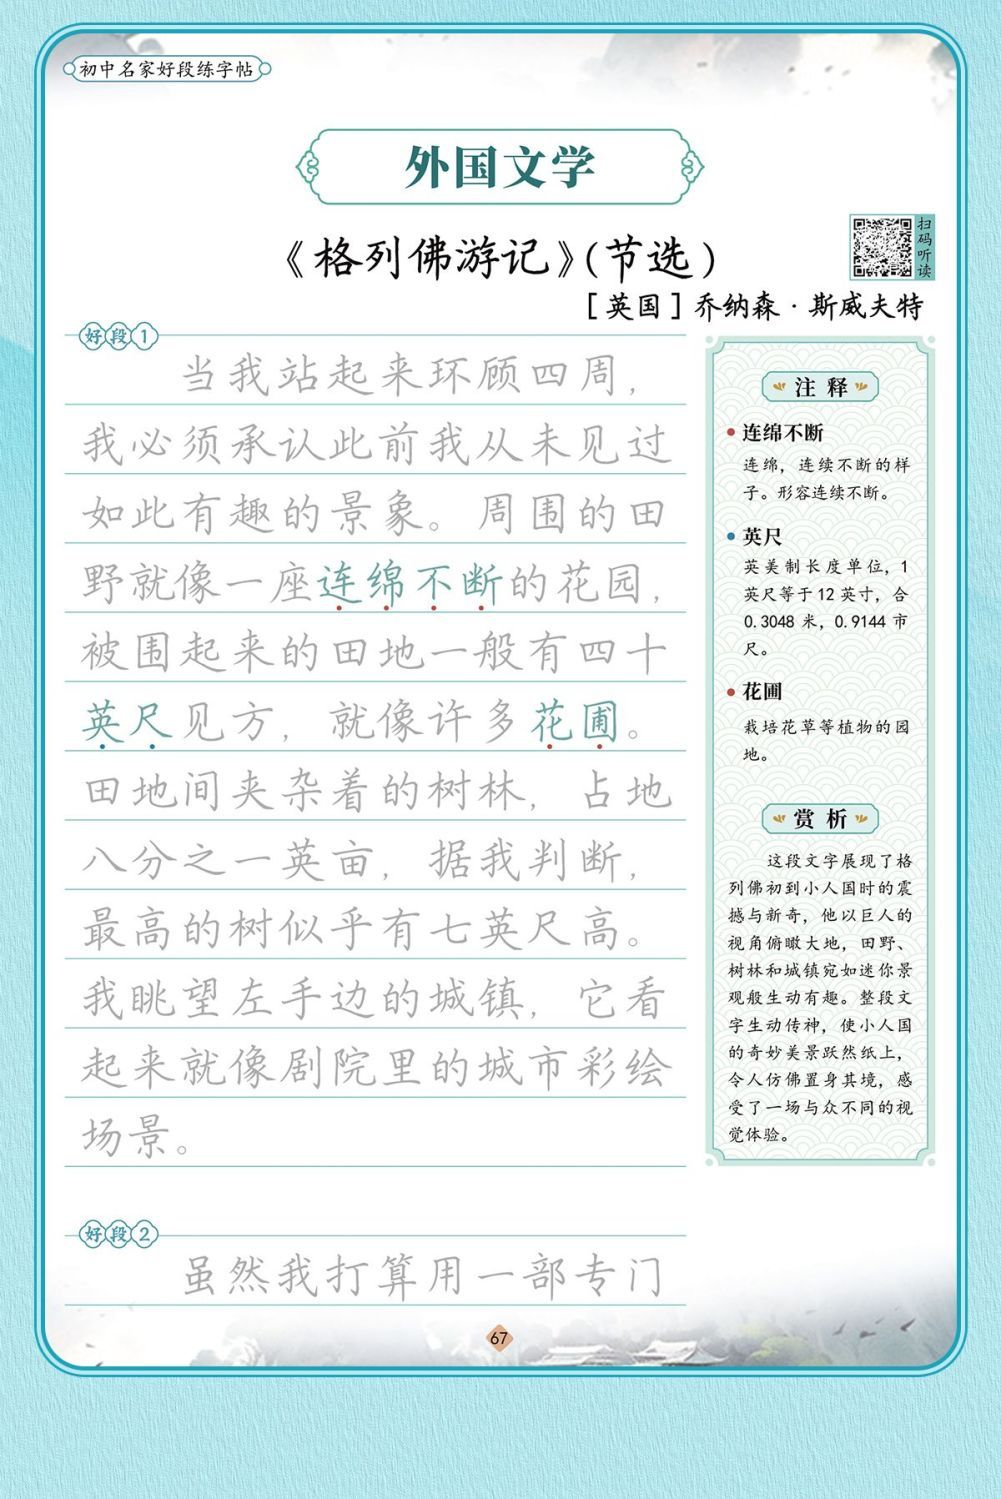 初中名家好段练字帖
外国文学
《格列佛游记》(节选)
扫码听读
[英国]乔纳森·斯威夫特
好段1
当我站起来环顾四周，
我必须承认此前我从未见过
如此有趣的景象。周围的田
野就像一座连绵不断的花园，
被围起来的田地一般有四十
英尺见方，就像许多花圃。
田地间夹杂着的树林，占地
八分之一英亩，据我判断，
最高的树似乎有七英尺高。
我眺望左手边的城镇，它看
起来就像剧院里的城市彩绘
场景。
注释
连绵不断
连绵，连续不断的样
子。形容连续不断。
英尺
英美制长度单位，1
英尺等于12英寸，合
0.3048 米，0.9144 市
尺。
花圃
栽培花草等植物的园
地。
赏析
这段文字展现了格
列佛初到小人国时的震
撼与新奇，他以巨人的
视角俯瞰大地，田野、
树林和城镇宛如迷你景
观般生动有趣。整段文
字生动传神，使小人国
的奇妙美景跃然纸上，
令人仿佛置身其境，感
受了一场与众不同的视
觉体验。
好段2
虽然我打算用一部专门
67